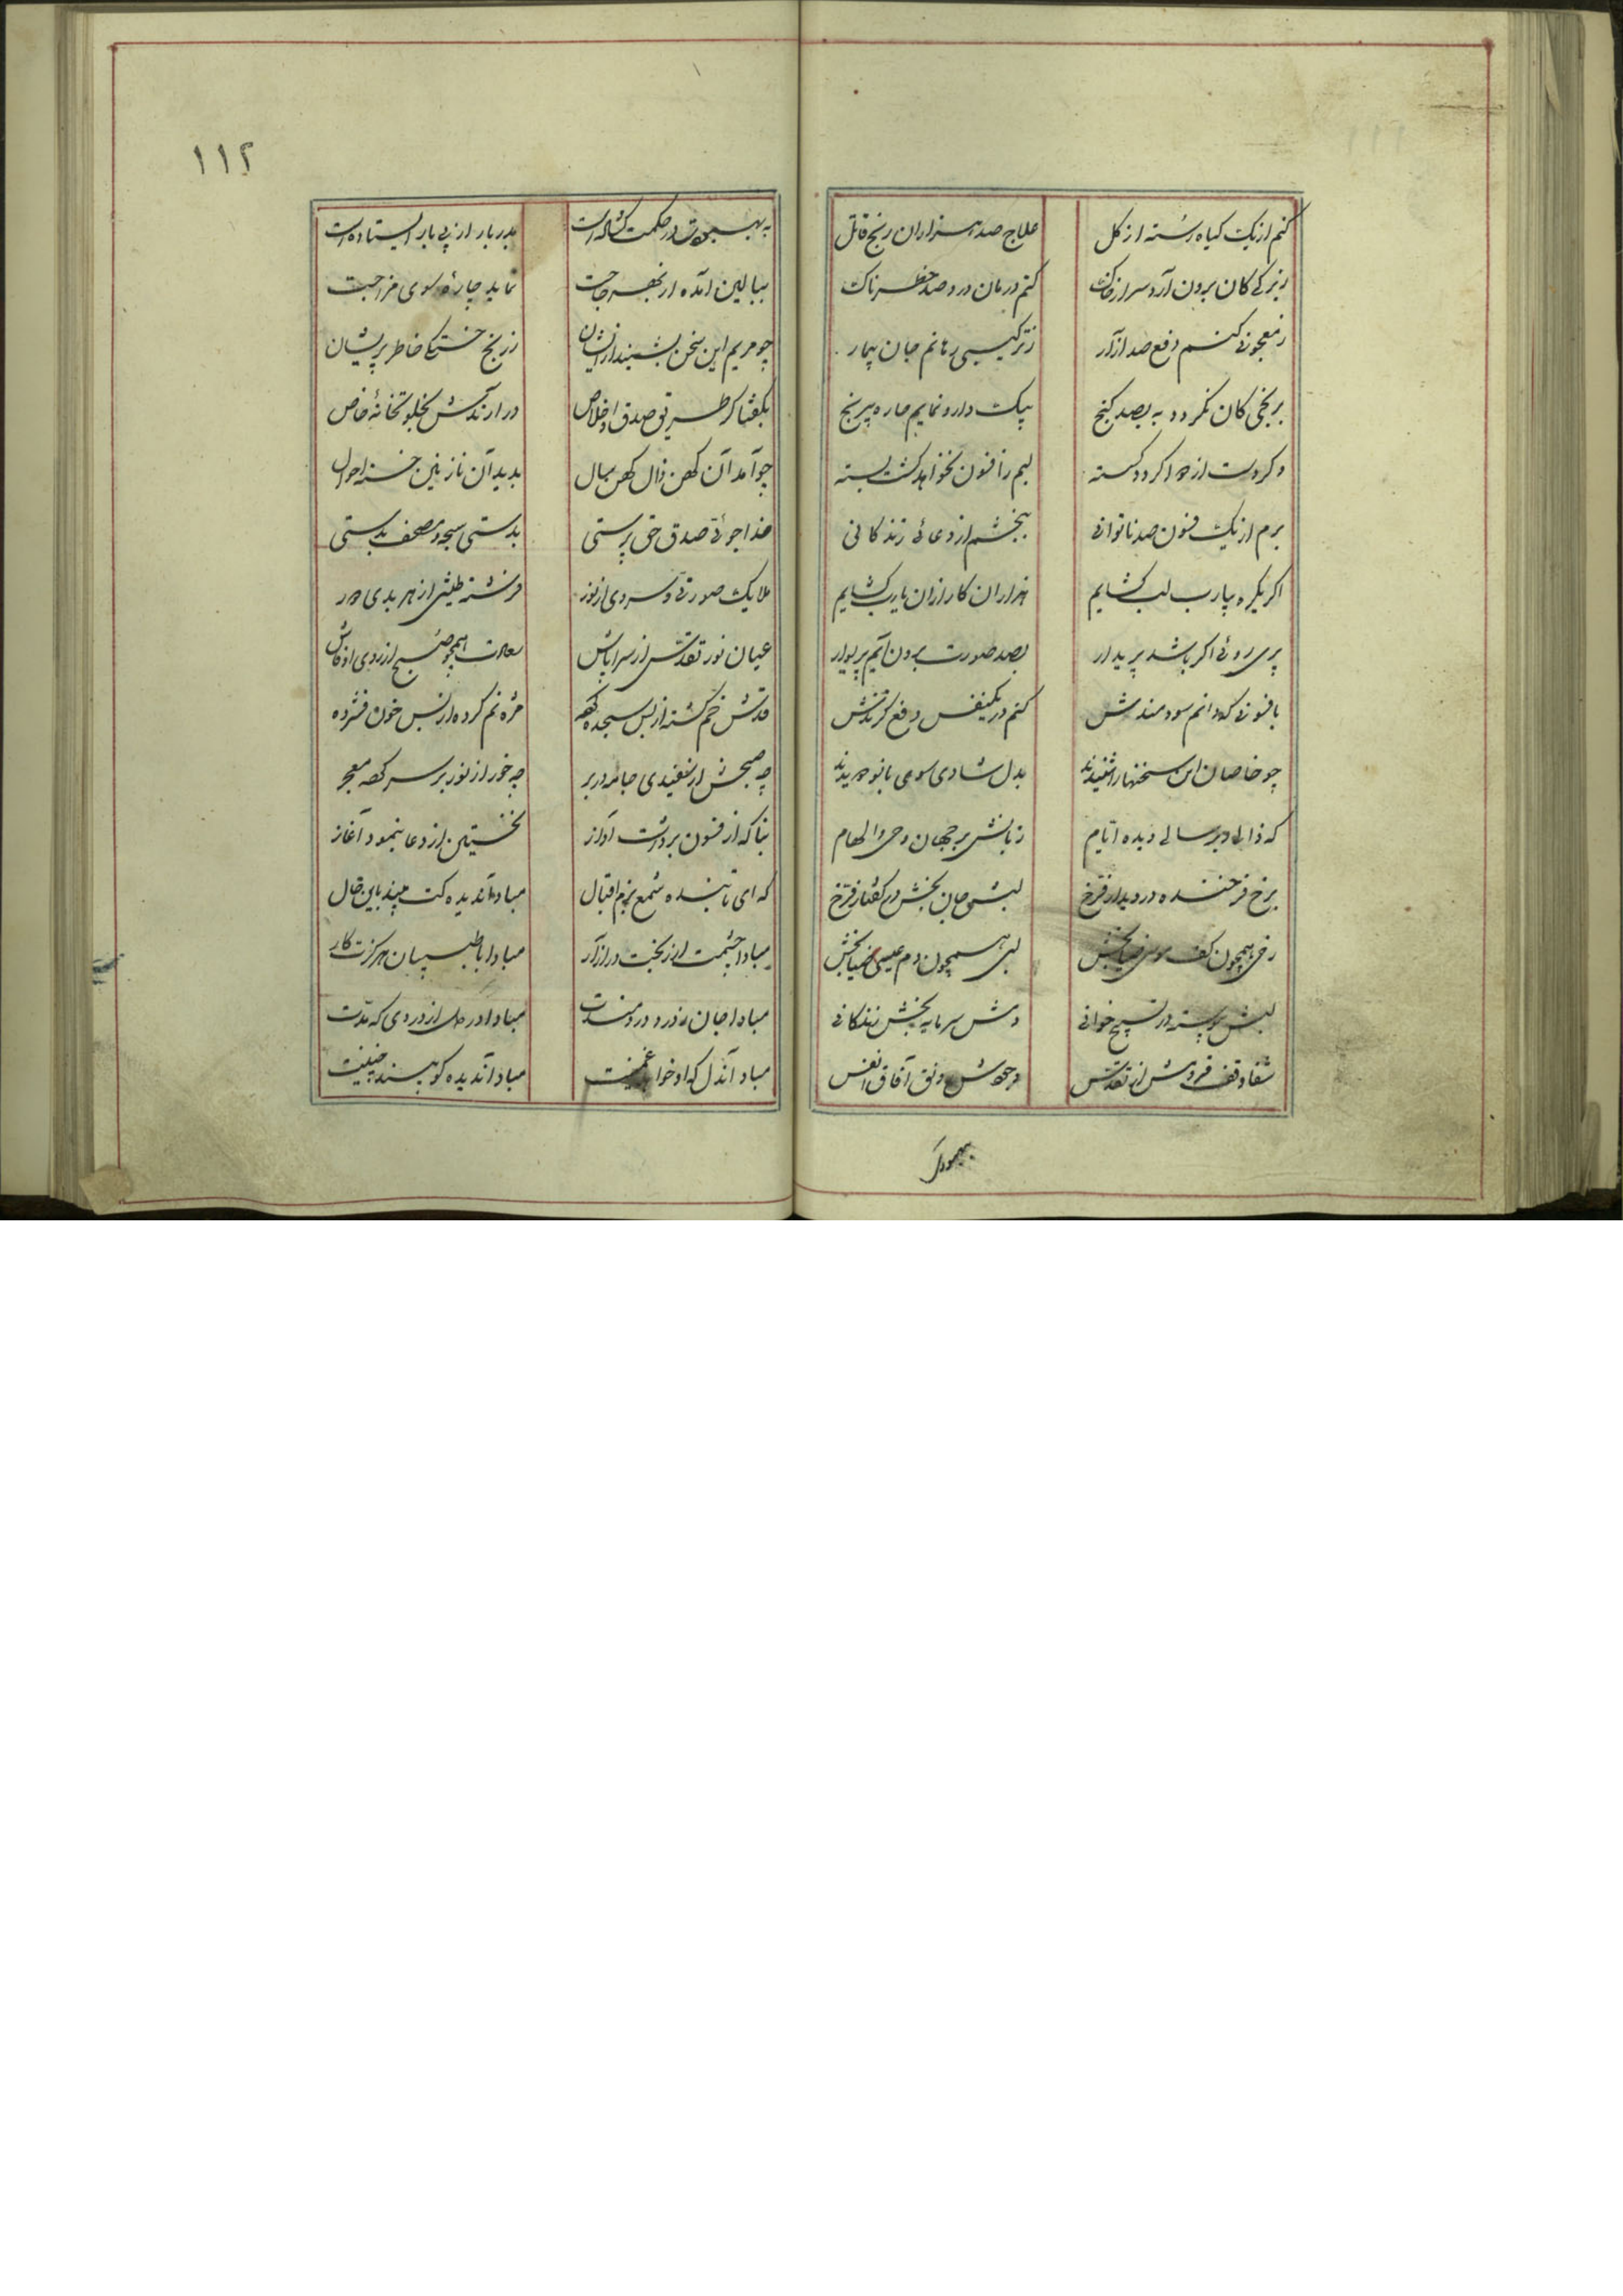 کنم از یک گیاه رسته از گل علاج صد هزاران رنج قاتل
ز برگی کان برون آرد سر از خاک کنم درمان درد صد خطرناک
ز معجونی کنم دفع صد آزار ز ترکیبی رهانم جان بیمار
برنجی کان نگردد به بصد گنج بیک دارو نمایم چاره پیرنج
وگر دست از دوا گردد گسته لبم را فنون نخواهد گشت بسته
برم از یک فنون صد ناتوانی ببخشم از دعائی زندگانی
اگر یکره بیارب لب گشایم هزاران کار از آن یارب گشایم
پری روئی اگر باشد پریدار بصد صورت برون آیم پریوار
بافسونی که دانم سودمندش کنم در یکنفس دفع گزندش
چو خاصان این سخنها را شنیدند بدل شادی سوی بانو دویدند
که زالی دیر سالی دیده ایام زبانش ترجمان وحی و الهام
برخ فرخنده در دیدار فرخ لبش جان بخش در گفتار فرخ
رخی همچون کف موسی ضیابخش لبی همچون دم عیسی بخش
لبش پیوسته در تسبیح خوانی دمش سرمایه بخش زندگانی
شفا وقف فروش از تقدس وجودش رونق آفاق و انفس
بهبود
۱۱۲
به بهبودت در حکمت گشاده است بدربار از پی بار ایستاده است
ببالین آمده از بهر حاجت نماید چاره سوی مزاجت
چو مریم این سخن بشنید از ایشان ز رنج خستگی خاطر پریشان
بگفتا کز طریق صدق و اخلاص در آرندش بخلوتخانه خاص
چو آمد آن کهن زال کهن سال بدید آن نازنین خسته احوال
خدا جوئی صدق حق پرستی بدستی سبحه و مصحف بدستی
ملایک صورتی و سروی از نور فرشته طینتی از هر بدی دور
عیان نور تقدس از سراپاش سعادت همچو صبح از روی او فاش
قدش خم گشته از بس سجده مژه نم کرده از بس خون فشرده
چه صبحش از سفیدی جامه در بر چه خور از نور بر سر معجر
بنا که از فنون برداشت آواز نخستین از دعا بنمود آغاز
که ای تابنده شمع بزم اقبال مباد آندیده کت بیند باین حال
مبادا چشمت از بخت در آزار مبادا با طبیبان هرگزت کار
مبادا جان ز درد دردمندت مبادا در دل از دردی که
مباد آندل که او خواهد غمینت مباد آندیده کو بیند چنینت